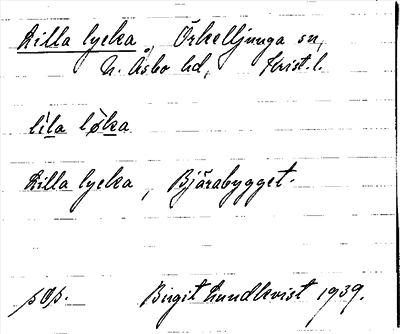 Lilla lycka, Örkelljunga sn,
N. Åsbo hd, Krist. l.
lìla løka
Lilla lycka, Bjärabygget.
pop. Birgit Lundkvist 1939.